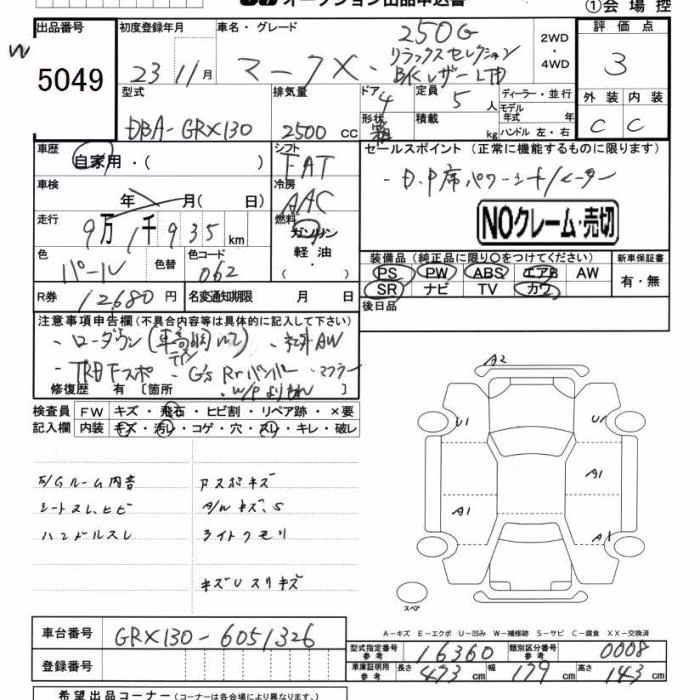 オークション出品申込書
①会場控
出品番号
5049
W
初度登録年月
23 11月
車名・グレード
マークX・250G
リラックスセレクション
BKレザーLTD
2WD
・
4WD
評価点
3
外装 内装
C C
型式
DBA-GRX130
排気量
2500 CC
ドア
4
形状
定員
5人
積載
kg
ディーラー・並行
モデル
年式 年
ハンドル 左・右
車歴
自家用・( )
シフト
FAT
車検
年 月( 日)
冷房
AAC
走行
9万1千935km
燃料
ガソリン
軽油
・( )
色
パール
色替
色コード
062
R券
12680円
名変通知期限 月 日
セールスポイント (正常に機能するものに限ります)
・D.P席パワーシート/ヒーター
NOクレーム・売切
装備品 (純正品に限り○をつけてください)
PS PW ABS エアB AW
SR ナビ TV カワ
新車保証書
有・無
後日品
注意事項申告欄 (不具合内容等は具体的に記入して下さい)
・ローダウン(車高調にて)・社外AW
・TRD Fスポ ・G's Rrバンパー ・マフラー
修復歴 有 [箇所 ]
検査員 FW キズ・飛石・ヒビ割・リペア跡・×要
記入欄 内装 キズ・汚レ・コゲ・穴・スレ・キレ・破レ
E/Gルーム内音
シートスレ、ヒビ
ハンドルスレ
Fスポキズ
A/Wキズ、S
ライトクモリ
キズUスリキズ
A2
U1
U1
A1
A1
A1
スペア
A-キズ E-エクボ U-凹み W-補修跡 S-サビ C-腐食 XX-交換済
車台番号
GRX130-6051326
登録番号
型式指定番号
参考
16360
類別区分番号
参考
0008
車庫証明用
参考
長さ 473cm 幅 179cm 高さ 143cm
希望出品コーナー (コーナーは各会場により異なります。)